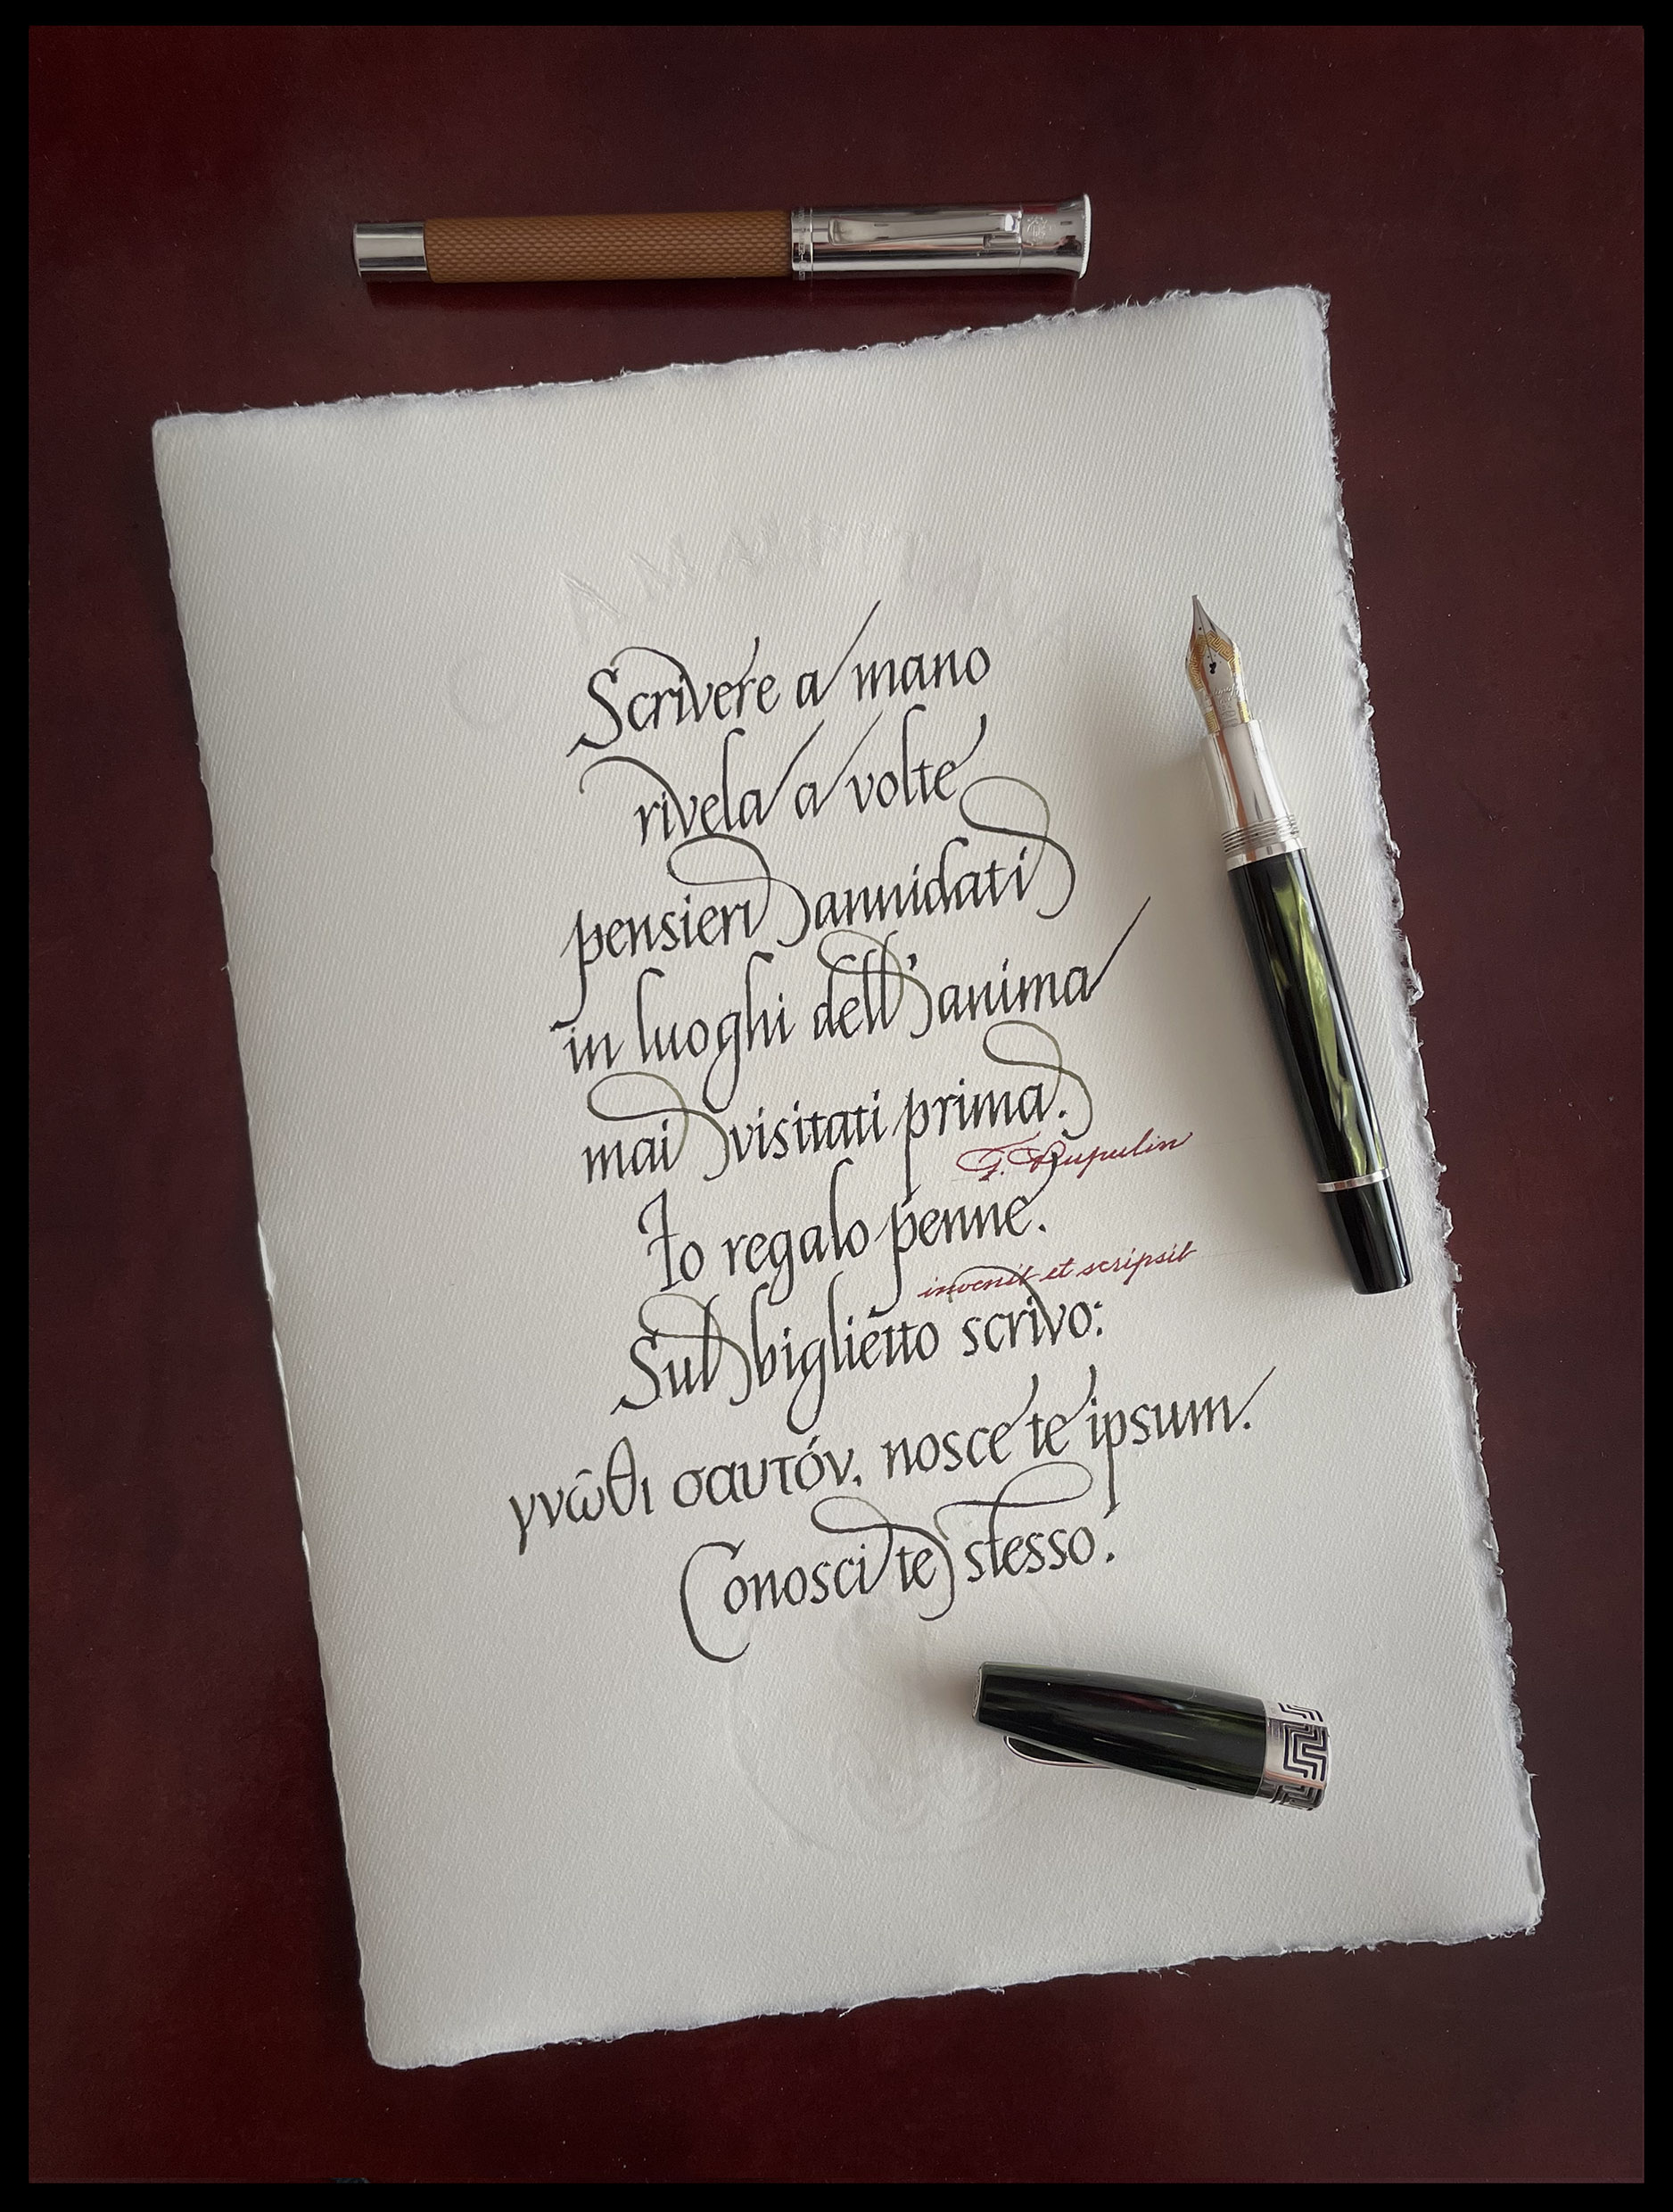 AMALFI
Scrivere a mano
rivela a volte
pensieri annidati
in luoghi dell'anima
mai visitati prima.
F. Pupulin
Io regalo penne.
invenit et scripsit
Sul biglietto scrivo:
γνῶθι σαυτόν, nosce te ipsum.
Conosci te stesso.